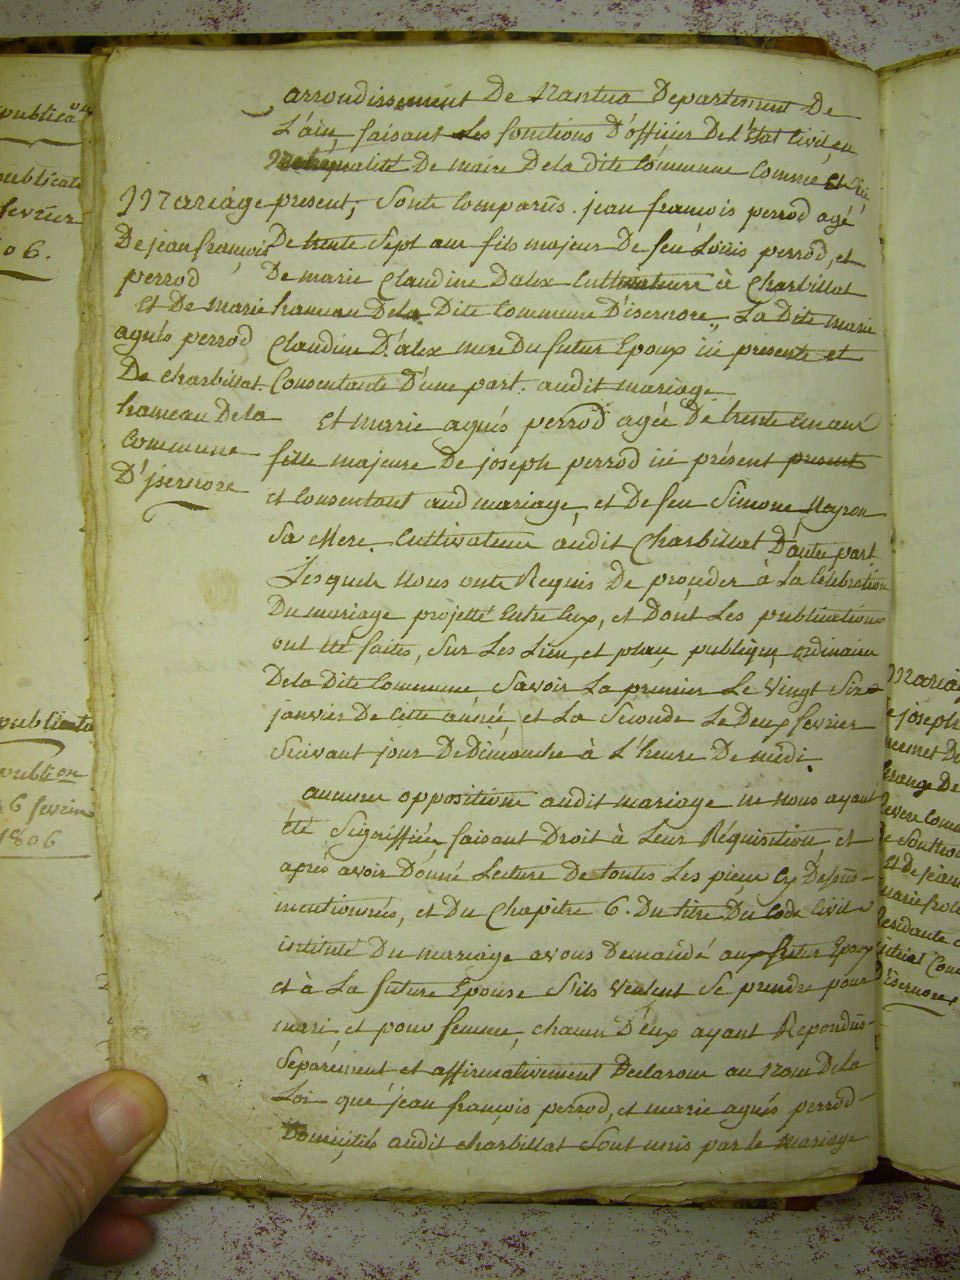 publica on
publicat
fevrier
06.
publicat
publi on
6 fevrier
1806
Mariage
De jean françois
perrod
Et De marie
agnés perrod
De charbillat
hameau De la
Commune
D'jsernore
arrondissement De Nantua Departement De
L'ain faisant Les fonctions D'officier De l'Etat Civil, en
De maire De la dite Commune Comme
present, Sont Comparus jean françois perrod agé
De trente Sept ans fils majeur De feu Louis perrod, et
De marie Claudine Dalex Cultivateur à Charbillat
hameau De la Dite Commune D'isernore, La Dite marie
Claudine D'alex mere Du futur Epoux ici presente et
Consentante D'une part. audit mariage
Et marie agnés perrod agée De trente cinq ans
fille majeure De joseph perrod ici présent present
et Consentant aud mariage, et De feu Simone Neyron
Sa Mere. Cultivateur audit Charbillat D'autre part
Lesquels Nous onts Requis De proceder à La Celebration
Du mariage projetté Entre Eux, et Dont Les publications
ont été faites, Sur Les Lieu, et place, publique, ordinaire
De la Dite Commune Savoir La premier Le Vingt Six
janvier De Cette année et La Seconde Le Deux fevrier
Suivant jour De Dimanche à L'heure De midi.
aucune opposition audit mariage ne nous ayant
été Signiffiée faisant Droit à Leur Réquisition et
aprés avoir Donné Lecture De toutes Les pieces Cy Dessus
mentionnées, et Du Chapitre 6. Du titre Du Code Civil
intitulé Du mariage avons Demandé au futur Epoux
et à La future Epouse S'ils veulent Se prendre pour
mari, et pour femme, chacun D'eux ayant Repondus
Separement et affirmativement Declarons au Nom De la
Loi que jean françois perrod, et marie agnés perrod
Domiciliés audit charbillat Sont unis par le mariage
Maria
joseph
De
De
Com
Et De
marie
Residante
Com
D'isernore